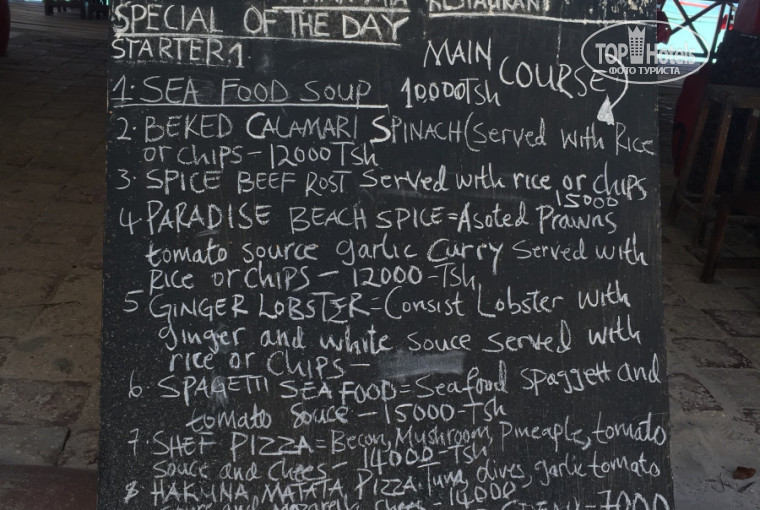 RESTAURANT
SPECIAL OF THE DAY
STARTER 1 MAIN COURSE
1. SEA FOOD SOUP 10000Tsh
2. BEKED CALAMARI SPINACH (Served with Rice
or chips - 12000 Tsh
3. SPICE BEEF ROST Served with rice or chips
15000
4. PARADISE BEACH SPICE = Asoted Prawns
tomato source garlic Curry Served with
Rice or chips - 12000 -Tsh
5 GINGER LOBSTER = Consist Lobster with
ginger and white souce served with
rice or chips -
6. SPAGETTI SEA FOOD = Seafood spaggett and
tomato souce - 15000 -Tsh
7. SHEF PIZZA = Becon, Mushroom, Pineaple, tomato
souce and chees - 14000 - Tsh
8 HAKUNA MATATA PIZZA Tuna, olives, garlic tomato
14000
7000
TOP Hotels
ФОТО ТУРИСТА